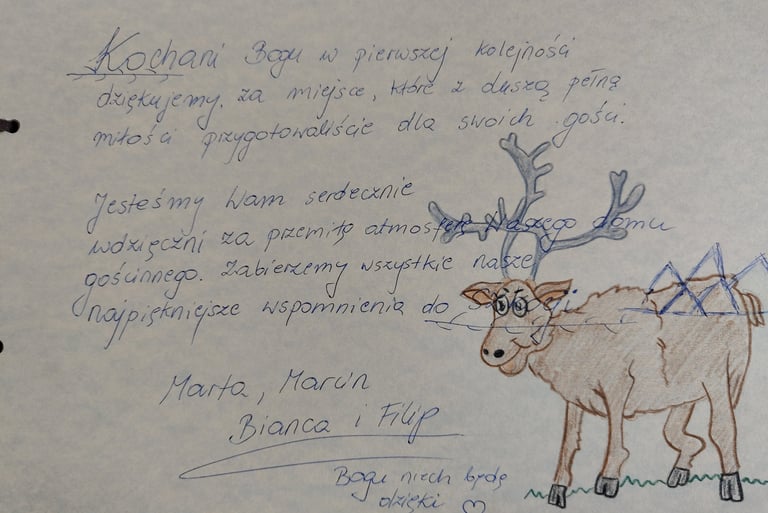 Kochani Bogu w pierwszej kolejności
dziękujemy za miejsce, które z duszą pełną
miłości przygotowaliście dla swoich gości.
Jesteśmy Wam serdecznie
wdzięczni za przemiłą atmosferę Waszego domu
gościnnego. Zabierzemy wszystkie nasze
najpiękniejsze wspomnienia do
Marta, Marcin
Bianca i Filip
Bogu niech będą
dzięki